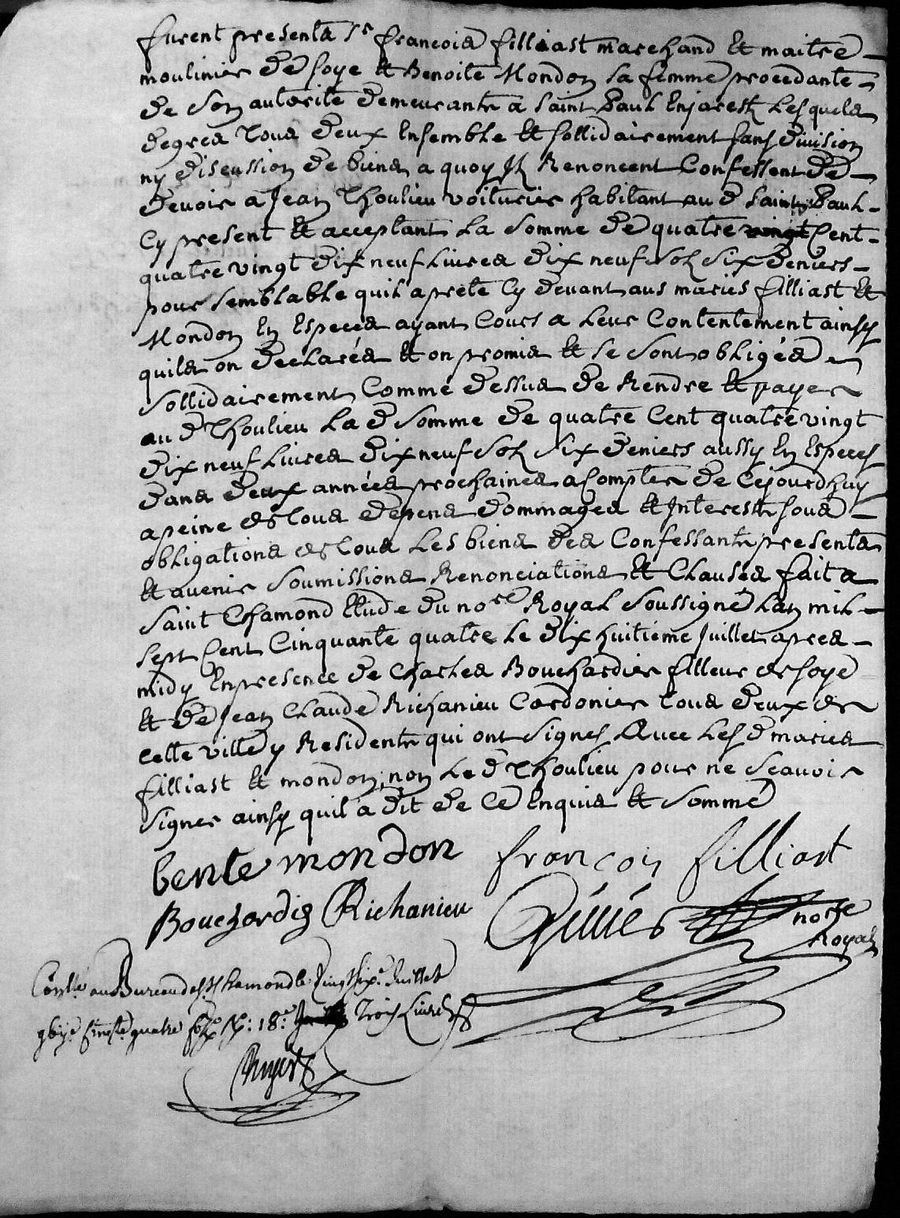 furent presents Sr francois filliast marchand et maitre
moulinier de soye et Benoite Mondon sa femme procedante
de son autorite demeurants a saint Paul Enjarest Lesquels
degres tous deux Ensemble et sollidairement sans division
ny discussion de biens a quoy Ils Renoncent Confessent de
devoir a Jean Thoulieu voiturier habitant au d saint Paul
Cy present et acceptant La somme de quatre vingt Cent
quatre vingt dix neuf Livres dix neuf sols six deniers
pour semblable quil a prete Cy devant aus maries filliast et
Mondon En Especes ayant Cours a Leur Contentement ainsy
quils on declarés et on promis et se sont obligés
sollidairement Comme dessus de Rendre et payer
au d Thoulieu La d somme de quatre Cent quatre vingt
dix neuf Livres dix neuf sols six deniers aussy En Especes
dans deux années prochaines a Compter de Cejourdhuy
a peine de tous depens dommages et Interests sous
obligations de tous Les biens des Confessants presents
et avenir soumissions Renonciations et Clauses fait a
Saint Chamond Etude du nore Royal soussigné Lan mil
sept Cent Cinquante quatre Le dix huitieme Juillet apres
midy En presence de Charles Bouchardier filleur de soye
et de Jean Claude Richanieu Cordonier tous deux de
Celle ville y Residents qui ont signes avec Les d maries
filliast et mondon, non Le d Thoulieu pour ne scavoir
signer ainsy quil a dit de Ce Enquis et sommé
bente mondon françois filliast
Bouchardie Richanieu
nore
Royal
Conlé au Bureau de St Chamond le vingt six Juillet
Cinqte quatre 18s trois Livres